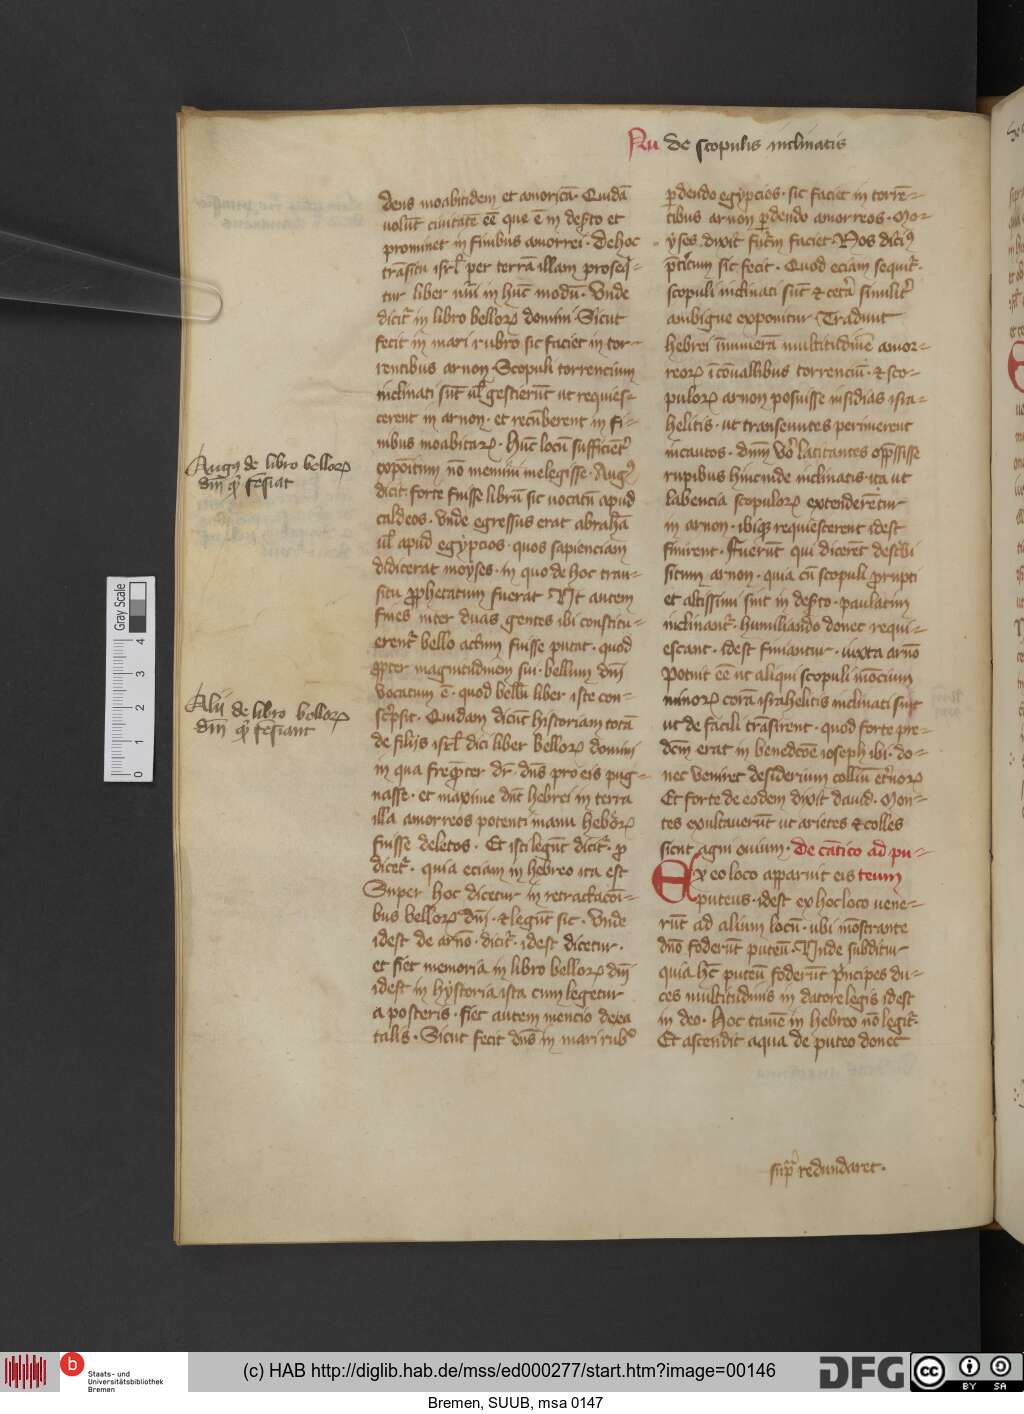 Nu de scopulis inclinatis
dens moabitidem et amoricā · Quidā
volūt civitatē eē que ē in desꝰto et
prominet in finibus amorrei · De hoc
trāsitu isrl̄ per terrā illam proseq̄=
tur liber nūi in hūc modū · Vnde
dicit᷑ in libro belloꝝ domini · Sicut
fecit in mari rubro sic faciet in tor=
rentibus arnon · Scopuli torrencium
inclinati sūt ul̓ gestierūt ut requies=
cerent in arnon · et recūberent in fi=
nibus moabitaꝝ · Hūc locū sufficient᷑
expoītum nō memini me legisse · Augꝰ
dicit forte fuisse librū sic uocatū apud
caldeos · vnde egressus erat abrahā
ul̓ apud egẏpcios · quos sapienciam
didicerat moẏses · in quo de hoc tran=
situ ꝓphetatum fuerat Ut autem
fines inter duas gentes ibi constitu=
erent᷑ bello actum fuisse putat · quod
ꝓpter magnitudinem sui · bellum dn̄i
vocatum ē · quod bellū liber iste con=
scꝰpsit · Quidam dicūt historiam totā
de filijs isrl̄ dici liber belloꝝ domini
in qua freqꝰter dr̄ · dn̄s pro eis pug=
nasse · et maxime dn̄t hebrei in terra
illa amorreos potenti manu hebreoꝝ
fuisse deletos · Et isti legūt dicit᷑ · ꝓ
dicet᷑ · quia eciam in hebreo ita est
Super hoc dicetur in retractacoī=
bus belloꝝ dn̄i · ⁊ legūt sic · Vnde
idest de arnō · dicit᷑ · idest dicetur ·
et fiet memoria in libro belloꝝ dn̄i
idest in hẏstoria ista cum legetur
a posteris · fiet autem mencio de ea
talis · Sicut fecit dn̄s in mari rubꝰ
Augꝰ de libro belloꝝ
dn̄i qͥ fꝰerat
Alii de libro belloꝝ
dn̄i
ꝑdendo egẏpcios · sic faciet in torrē=
tibus arnon ꝑdendo amorreos · Mo=
ẏses dixit futꝰm faciet · Nos dicimꝰ
p̄tꝰitum sic fecit · Quod eciam sequit᷑ ·
scopuli inclinati sūt ⁊ cetā similit᷑
ambigue exponitur Tradunt
hebrei īnumerā multitudinē amor=
reoꝝ ī cōuallibus torrenciū · ⁊ sco=
puloꝝ arnon posuisse insidias isra=
helitis · ut transeuntes perimerent
incautos · dn̄m vꝰo latitantes op̄ssisse
rupibus hincinde inclinatis · ita ut
labencia scopuloꝝ extenderētur
in arnon · ibiqꝫ requiescerent idest
finirent · Fuerūt qui dicerēt desc̄bi
situm arnon · quia cū scopuli prupti
et altissimi sint in desꝰto · paulatim
inclinant᷑ · humiliando donec requi=
escant · idest finiantur · iuxta arnō
Potuit eē ut aliqui scopuli moncium
minoꝝ corā israhelitis inclinati sint
ut de facili trāsirent · quod forte pre=
dcm̄ erat in benedcōe ioseph ibi · do=
nec veniret desiderium colliū etꝰnoꝝ
Et forte de eodem dixit dauid · Mon=
tes exultauerūt ut arietes ⁊ colles
sicut agni ouium · De cātico ad pu=
Ex eo loco apparuit eis teum
puteus · idest ex hoc loco vene=
rūt ad alium locū · ubi mōstrante
dn̄o foderūt puteū · Unde subditur
quia hc̄ puteū foderūt pꝰncipes du=
ces multitudinis in datore legis idest
in deo · Hoc tamē in hebreo nō legit᷑ ·
Et ascendit aqua de puteo donec
supꝰ redundaret ·
Gray Scale
0 1 2 3 4
Staats- und
Universitätsbibliothek
Bremen
(c) HAB http://diglib.hab.de/mss/ed000277/start.htm?image=00146
DFG
cc BY SA
Bremen, SUUB, msa 0147